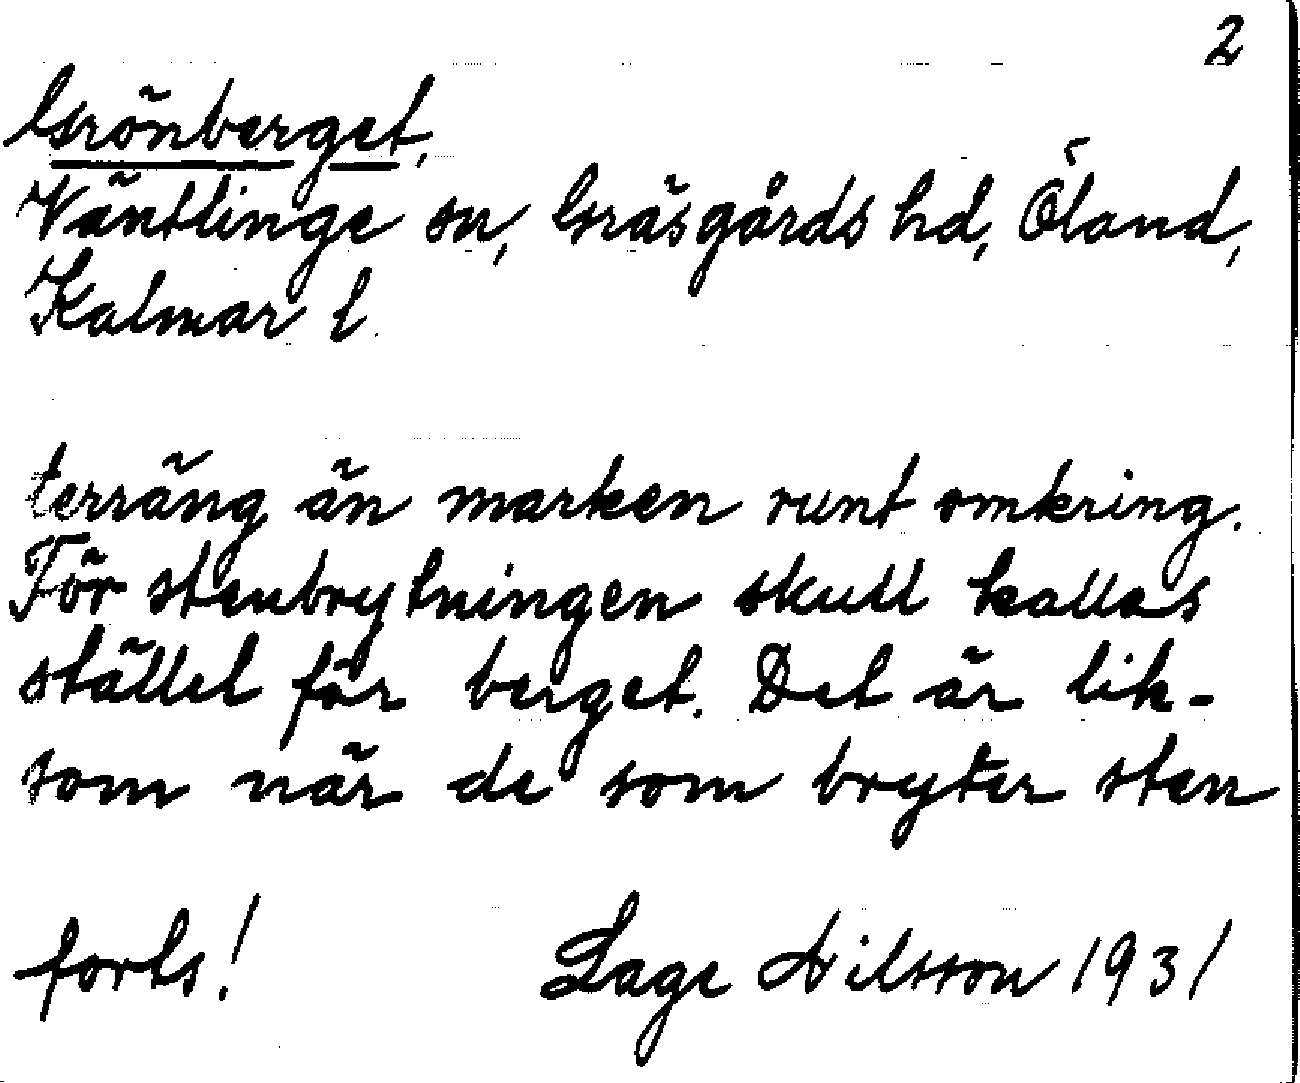 2
Grönberget,
Väntlinge sn, Gräsgårds hd, Öland,
Kalmar l.
terräng än marken runt omkring.
För stenbrytningen skull kallas
stället för berget. Det är lik-
som när de som bryter sten
forts! Lage Nilsson 1931